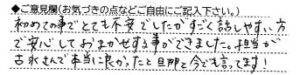 ◆ご意見欄(お気づきの点などご自由にご記入下さい。)
初めての事でとても不安でしたがすごく話しやすい方
で安心しておまかせする事ができました。担当が
古水さんで本当に良かったと旦那と今でも言ってます!